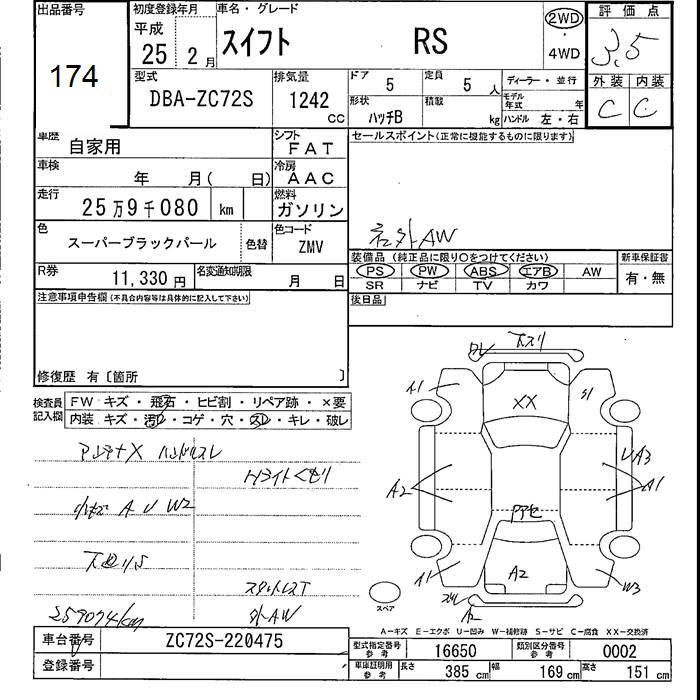 出品番号 初度登録年月 車名・グレード 評価点
174
平成 25 年 2 月 スイフト RS 2WD ・ 4WD 3.5
型式 DBA-ZC72S 排気量 1242 CC
ドア 5 定員 5 人 ディーラー・並行
形状 ハッチB 積載 kg モデル年式 年 ハンドル 左・右
外装 内装
C C
車歴 自家用 シフト FAT
セールスポイント(正常に機能するものに限ります)
車検 年 月( 日) 冷房 AAC
走行 25万9千080 km 燃料 ガソリン
社外AW
色 スーパーブラックパール 色替 色コード ZMV
装備品 (純正品に限り○をつけてください) 新車保証書
PS PW ABS エアB AW 有・無
SR ナビ TV カワ
R券 11,330 円 名変通知期限 月 日
後日品
注意事項申告欄(不具合内容等は具体的に記入して下さい)
修復歴 有〔箇所 〕
検査員記入欄 FW キズ・飛石・ヒビ割・リペア跡・×要
内装 キズ・汚レ・コゲ・穴・スレ・キレ・破レ
アンテナX ハンドルスレ
Hライトくもり
小キズ A U W2
スタットレスT
259074km 外AW
A1
XX
A2
A3
A1
A2
A1
W3
スペア
A-キズ E-エクボ U-凹み W-補修跡 S-サビ C-腐食 XX-交換済
車台番号 ZC72S-220475
登録番号
型式指定番号 参考 16650 類別区分番号 参考 0002
車庫証明用 参考 長さ 385 cm 幅 169 cm 高さ 151 cm